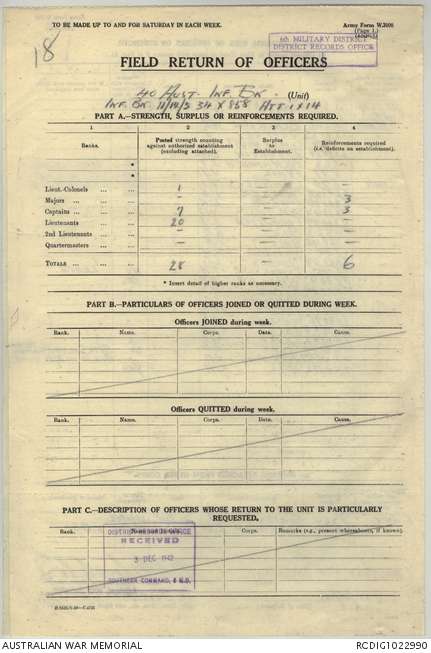 TO BE MADE UP TO AND FOR SATURDAY IN EACH WEEK.
Army Form W.3008
(Page 1.)
(Adapted)
18
6th MILITARY DISTRICT
DISTRICT RECORDS OFFICE
FIELD RETURN OF OFFICERS
40 Aust. Inf. Bn. (Unit)
Inf. Bn. II/14/3 34 X 858 Att 1 X 14
PART A.—STRENGTH, SURPLUS OR REINFORCEMENTS REQUIRED.
1 2 3 4
Ranks. Posted strength counting against authorized establishment (excluding attached). Surplus to Establishment. Reinforcements required (i.e. deficits on establishment).
* — — —
* — — —
Lieut.-Colonels ... ... 1 — —
Majors ... ... — — 3
Captains ... ... 7 — 3
Lieutenants ... ... 20 — —
2nd Lieutenants ... ... — — —
Quartermasters ... ... — — —
TOTALS ... ... ... 28 — 6
* Insert detail of higher ranks as necessary.
PART B.—PARTICULARS OF OFFICERS JOINED OR QUITTED DURING WEEK.
Officers JOINED during week.
Rank. Name. Corps. Date. Cause.
Officers QUITTED during week.
Rank. Name. Corps. Date. Cause.
PART C.—DESCRIPTION OF OFFICERS WHOSE RETURN TO THE UNIT IS PARTICULARLY
REQUESTED.
Rank. Name. Corps. Remarks (e.g., present whereabouts, if known).
DISTRICT RECORDS OFFICE
RECEIVED
3 DEC 1942
SOUTHERN COMMAND, 6 M.D.
AUSTRALIAN WAR MEMORIAL
RCDIG1022990